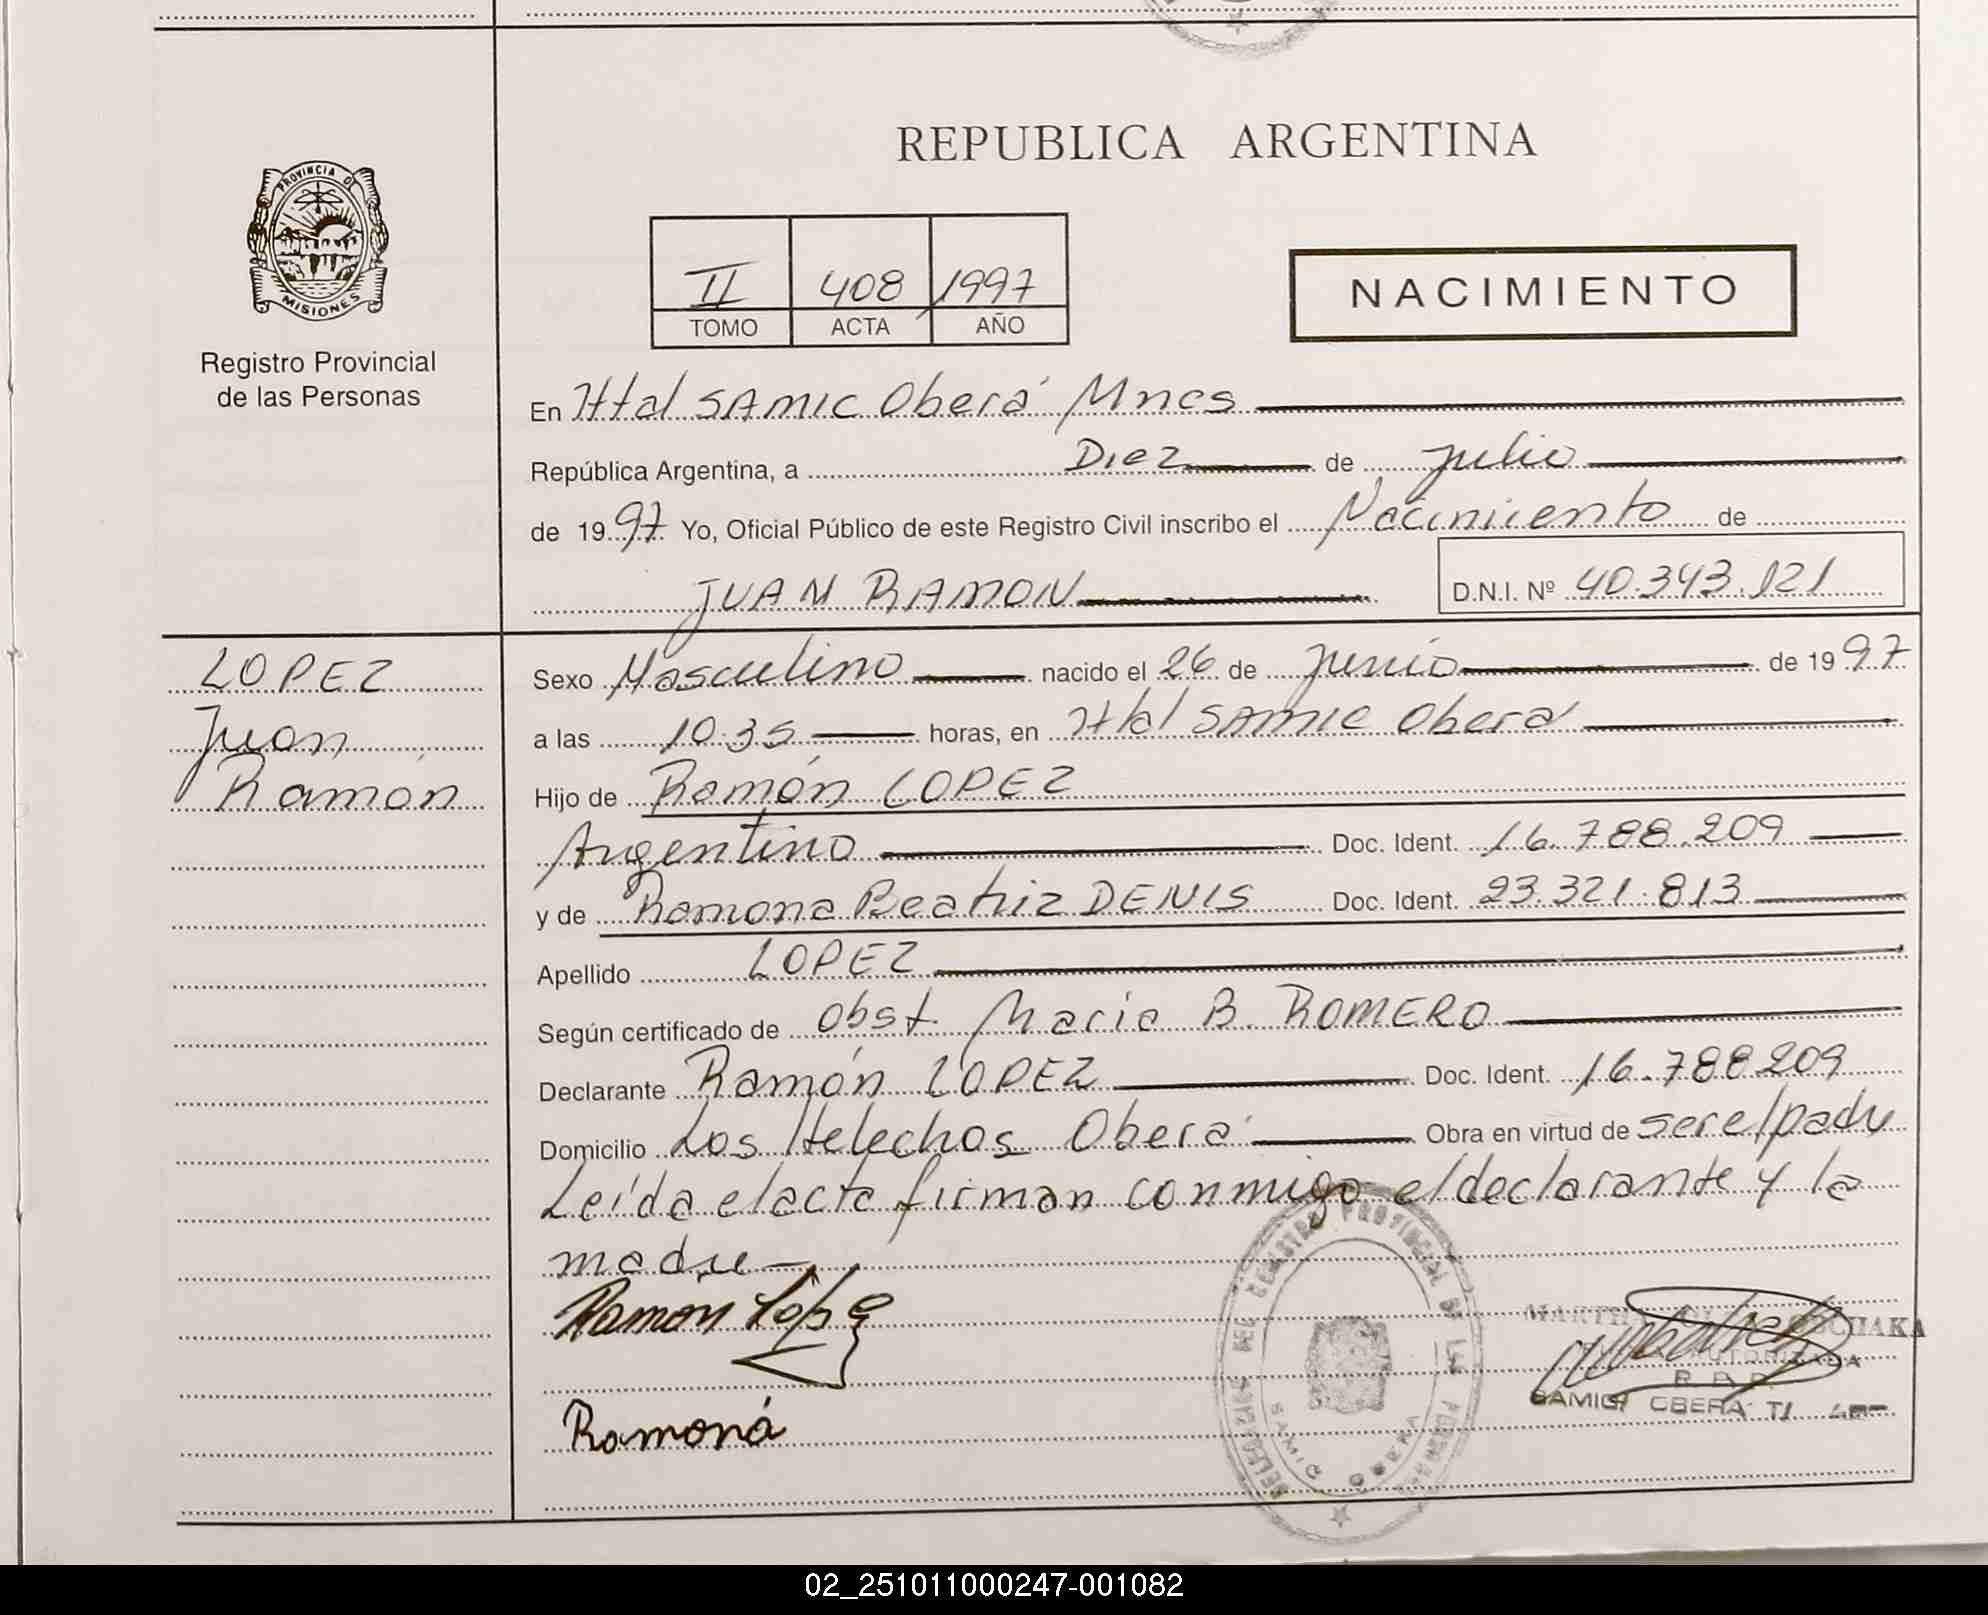 REPUBLICA ARGENTINA
PROVINCIA DE
MISIONES
Registro Provincial
de las Personas
II 408 1997
TOMO ACTA AÑO
NACIMIENTO
En Htal SAMIC Oberá Mnes
República Argentina, a Diez de Julio
de 1997 Yo, Oficial Público de este Registro Civil inscribo el Nacimiento de
JUAN RAMON D.N.I. Nº 40.343.121
LOPEZ
Juan
Ramón
Sexo Masculino nacido el 26 de Junio de 1997
a las 10.35 horas, en Htal SAMIC Oberá
Hijo de Ramón LOPEZ
Argentino Doc. Ident. 16.788.209
y de Ramona Beatriz DENIS Doc. Ident. 23.321.813
Apellido LOPEZ
Según certificado de Obst. Maria B. ROMERO
Declarante Ramón LOPEZ Doc. Ident. 16.788.209
Domicilio Los Helechos Oberá Obra en virtud de ser el padre
Leída el acta firman conmigo el declarante y la
madre
Ramon Lopez
Ramoná
PROVINCIAL DE LAS
SAMIC OBERA
MARTHA
AUTORIZADA
SAMIC OBERA
02_251011000247-001082